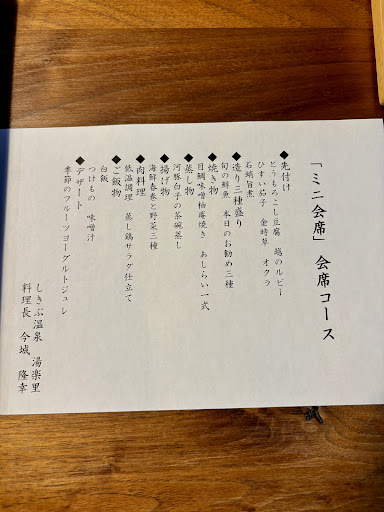 「ミニ会席」会席コース
◆先付け
とうもろこし豆腐 越のルビー
ひすい茄子 金時草 オクラ
石蛸旨煮
◆造り二種盛り
旬の鮮魚 本日のお勧め三種
◆焼き物
目鯛味噌柚庵焼き あしらい一式
◆蒸し物
河豚白子の茶碗蒸し
◆揚げ物
海鮮春巻と野菜三種
◆肉料理
低温調理 蒸し鶏サラダ仕立て
◆ご飯物
白飯
つけもの 味噌汁
◆デザート
季節のフルーツヨーグルトジュレ
しきぶ温泉 湯楽里
料理長 今城 隆幸